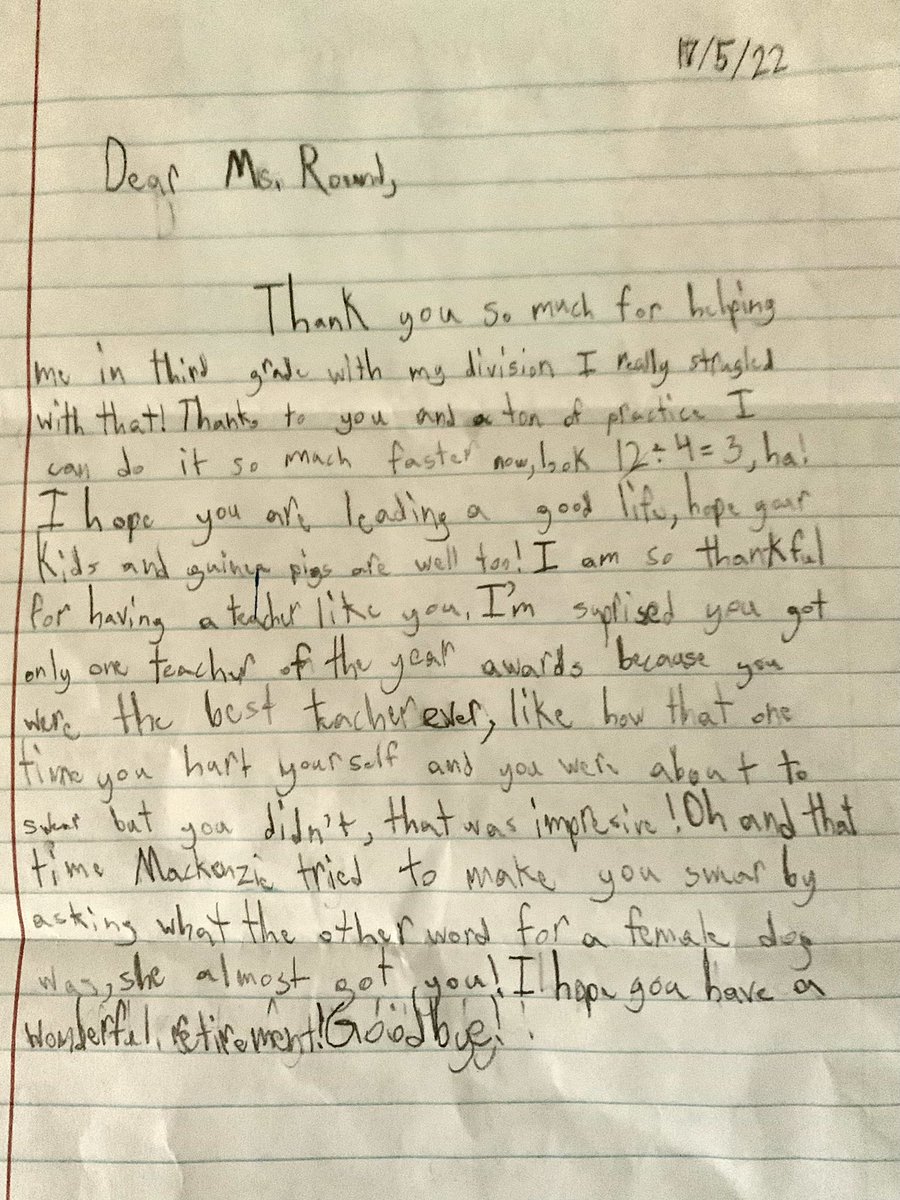 17/5/22
Dear Ms. Round,
Thank you so much for helping
me in third grade with my division I really strugled
with that! Thanks to you and a ton of practice I
can do it so much faster now, look 12÷4=3, ha!
I hope you are leading a good life, hope your
kids and guinea pigs are well too! I am so thankful
for having a teacher like you. I'm suprised you got
only one teacher of the year awards because you
were the best teacher ever, like how that one
time you hurt yourself and you were about to
swear but you didn't, that was impresive! Oh and that
time Mackenzie tried to make you swear by
asking what the other word for a female dog
was, she almost got you! I hope you have a
wonderful retirement! Goodbye!